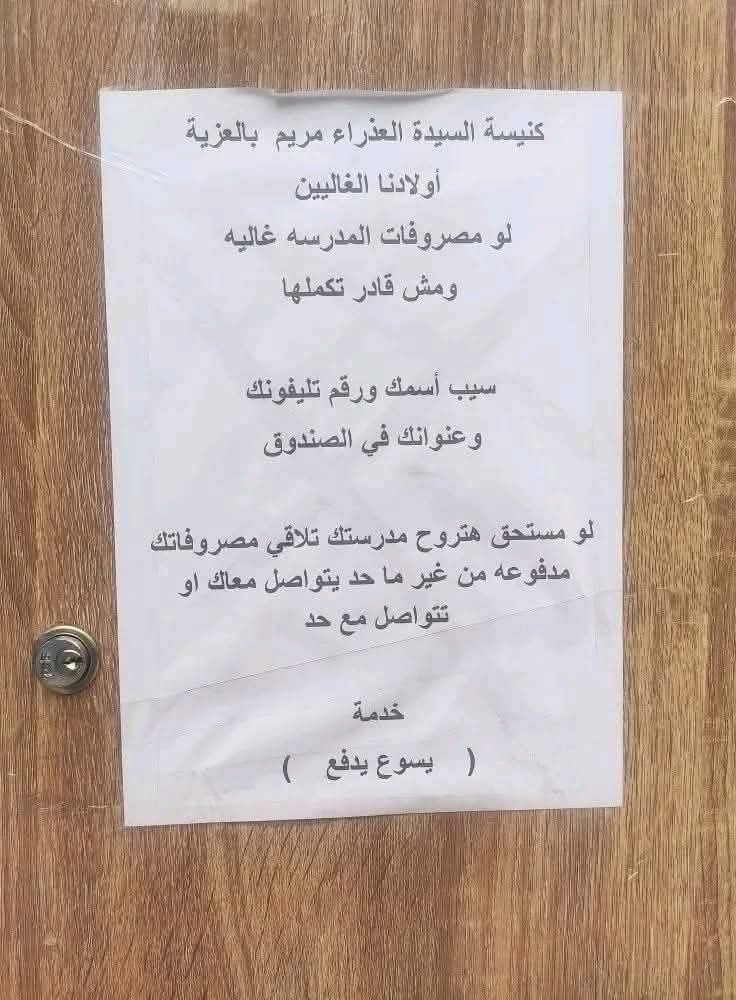 كنيسة السيدة العذراء مريم بالعزية
أولادنا الغاليين
لو مصروفات المدرسه غاليه
ومش قادر تكملها
سيب أسمك ورقم تليفونك
وعنوانك في الصندوق
لو مستحق هتروح مدرستك تلاقي مصروفاتك
مدفوعه من غير ما حد يتواصل معاك او
تتواصل مع حد
خدمة
( يسوع يدفع )